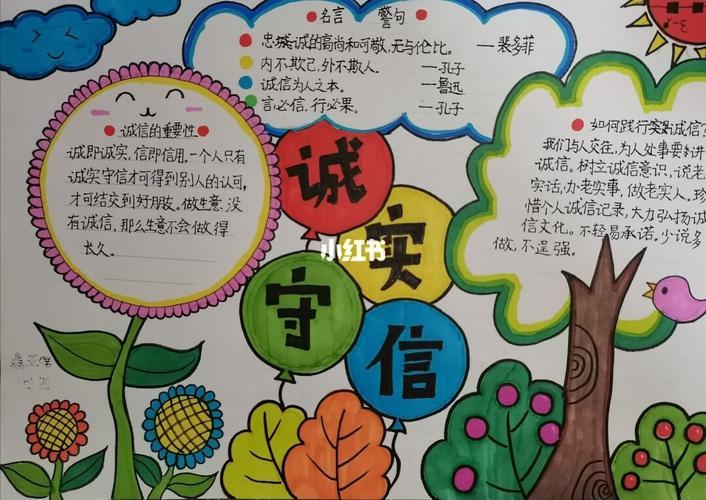 名言 警句
忠诚的高尚和可敬，无与伦比。 —裴多菲
内不欺己，外不欺人。 —孔子
诚信为人之本。 —鲁迅
言必信，行必果。 —孔子
诚信的重要性
诚即诚实，信即信用。一个人只有
诚实守信才可得到别人的认可，
才可结交到好朋友。做生意，没
有诚信，那么生意不会做得
长久。
诚
实
守
信
小红书
如何践行实践诚信
我们与人交往，为人处事要讲
诚信。树立诚信意识，说老
实话，办老实事，做老实人，珍
惜个人诚信记录，大力弘扬诚
信文化。不轻易承诺。少说多
做，不逞强。